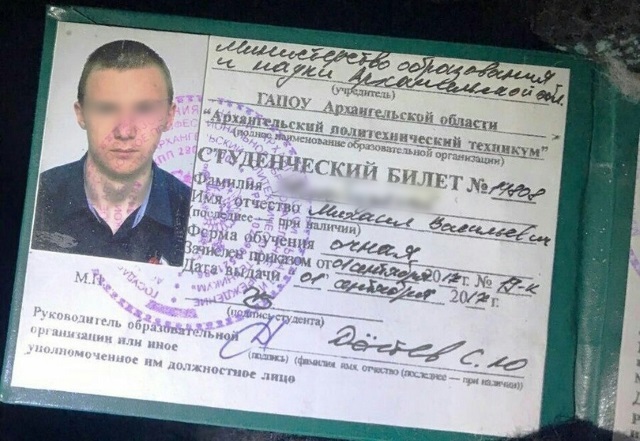 Министерство образования
и науки Архангельской обл.
(учредитель)
ГАПОУ Архангельской области
"Архангельский политехнический техникум"
(полное наименование образовательной организации)
СТУДЕНЧЕСКИЙ БИЛЕТ №17808
Фамилия
Имя отчество Михаил Васильевич
(последнее — при наличии)
Форма обучения очная
Зачислен приказом от 01 сентября 2017г. №
Дата выдачи 01 сентября 2017г.
М.П.
(подпись студента)
Руководитель образовательной
организации или иное
уполномоченное им должностное лицо
С.Ю
(подпись) (фамилия имя отчество (последнее — при наличии))